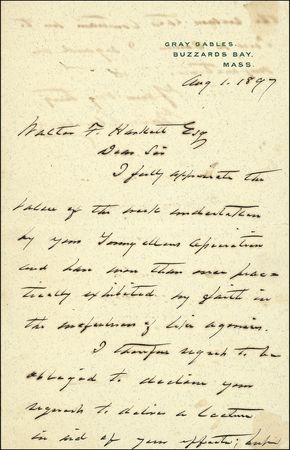 GRAY GABLES.
BUZZARDS BAY,
MASS.
Aug 1. 1897
Walter F. Haskell Esq
Dear Sir
I fully appreciate the
value of the work undertaken
by your Association
and have more than once prac-
tically exhibited my faith in
the usefulness of like agencies.
I therefore regret to be
obliged to decline your
request to deliver a lecture
in aid of your efforts; but